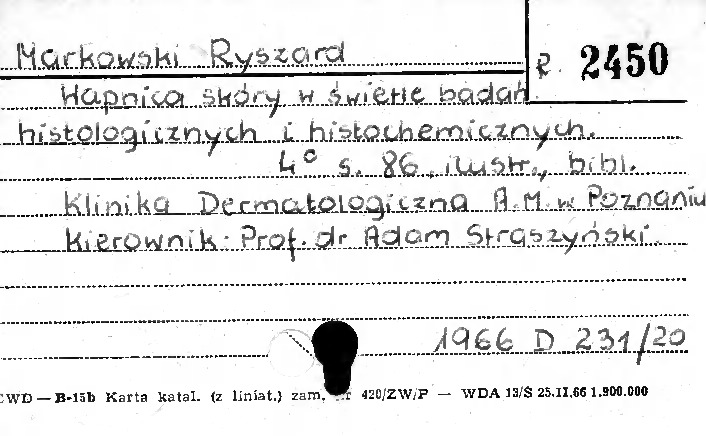 Markowski Ryszard
R. 2450
Wapnica skóry w świetle badań
histologicznych i histochemicznych.
4° s. 86, ilustr., bibl.
Klinika Dermatologiczna A.M. w Poznaniu
Kierownik: Prof. dr Adam Straszyński.
1966 D 231/20
CWD — B-15b Karta katal. (z liniat.) zam. 420/ZW/P — WDA 13/S 25.II.66 1.900.000